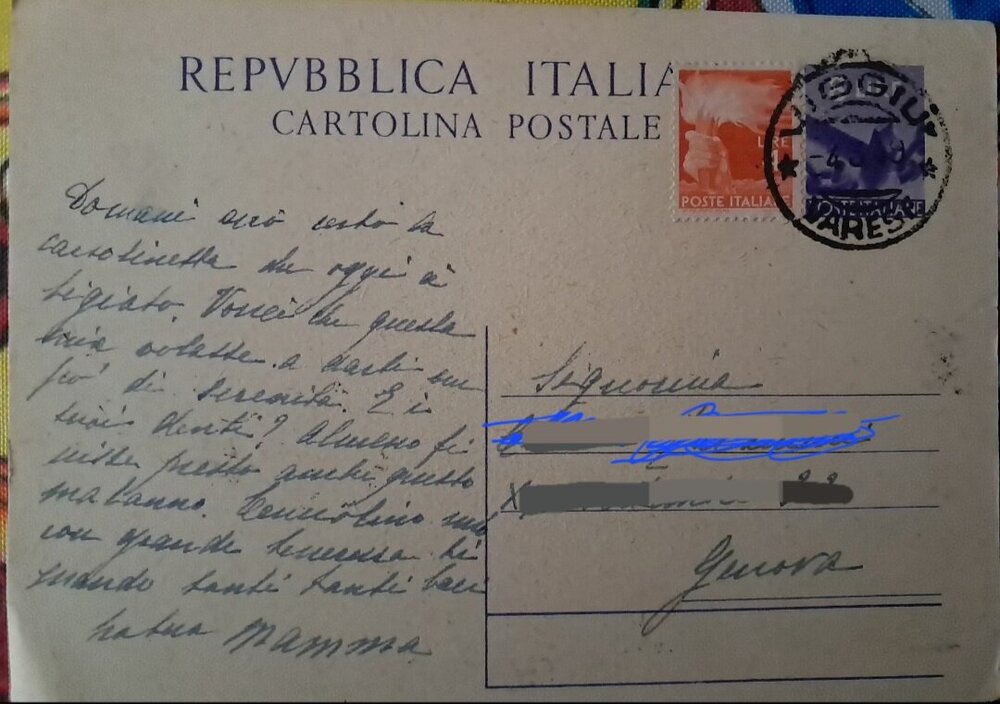 REPVBBLICA ITALIA
CARTOLINA POSTALE
LIRE
POSTE ITALIANE
VIGGIU'
-4
VARESE
Domani avrò certo la
cartolinetta che oggi à
Vorrei che questa
mia volasse a darti un
po' di serenità. E i
tuoi denti? Almeno fi
nisse presto anche questo
malanno. mio
con grande tenerezza ti
mando tanti tanti baci
la tua Mamma
Signorina
Genova